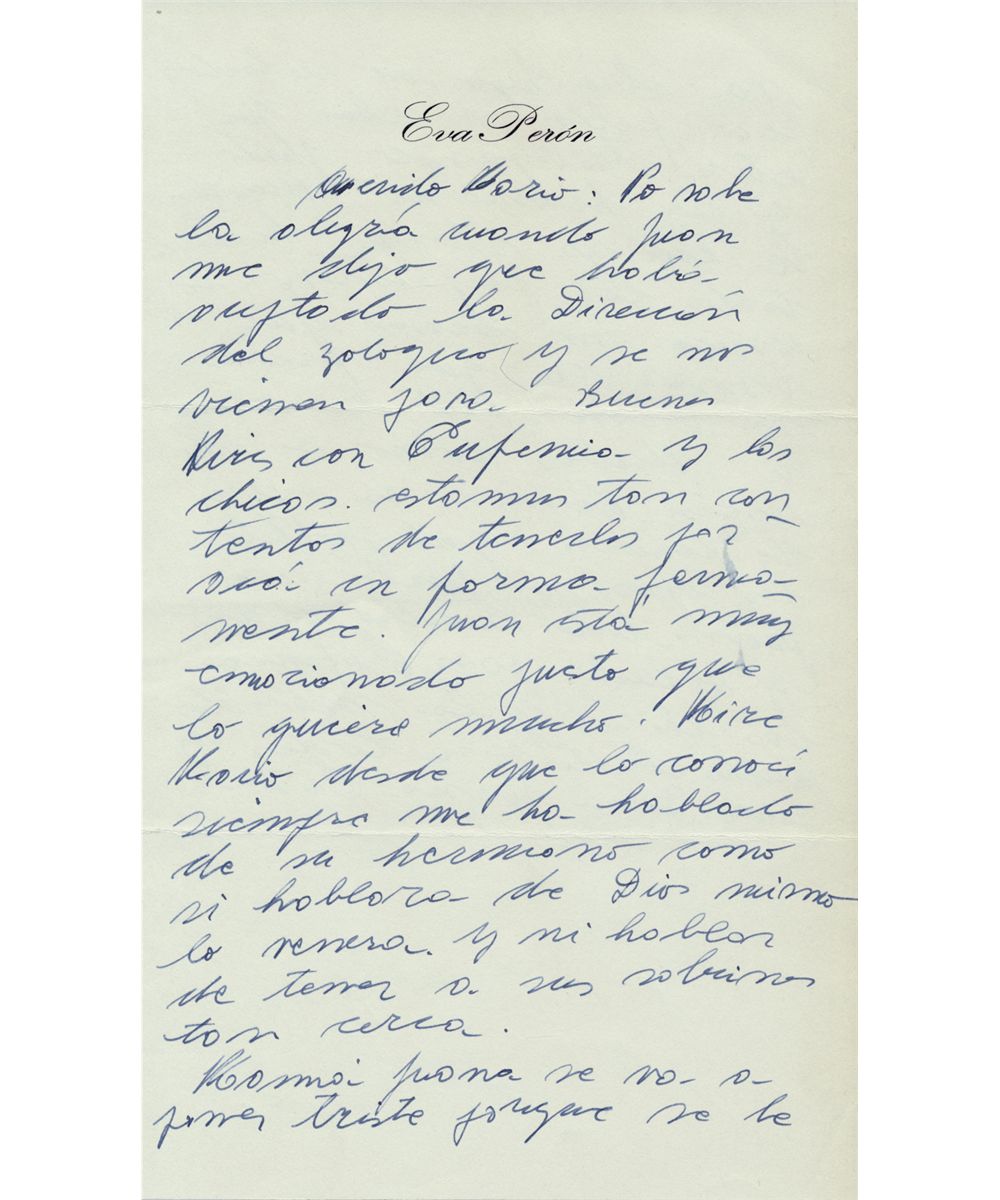 Eva Perón
Querido Mario: No sabe
la alegrá cuando Juan
me dijo que habiá
aceptado la Dirección
del zologico y se nos
vienen para Buenos
Aires con Eufemia y los
chicos. estamos tan con
tentos de tenerlos por
acá en forma perma-
nente. Juan está muy
emocionado justo que
lo quiere mucho. Mire
Mario desde que lo conocí
siempre me ha hablado
de su hermano como
si hablara de Dios mismo
lo venera. Y ni hablar
de tener a sus sobrinos
tan cerca.
Mamá Juana se va a
poner triste porque se le